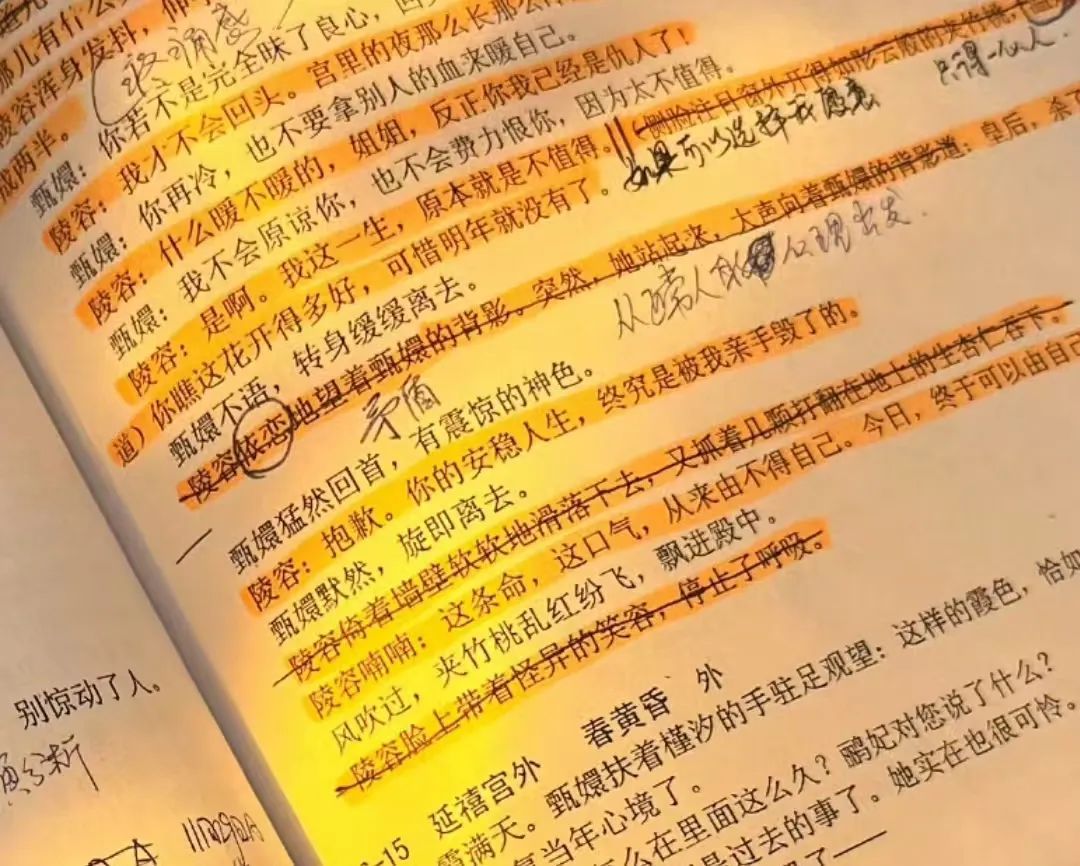 那儿有什么
陵容浑身发抖，
成两半。
甄嬛：你若不是完全昧了良心，因
陵容：我才不会回头。宫里的夜那么长那么
甄嬛：你再冷，也不要拿别人的血来暖自己。
陵容：什么暖不暖的，姐姐，反正你我已经是仇人了！
甄嬛：我不会原谅你，也不会费力恨你，因为太不值得。
陵容：是啊。我这一生，原本就是不值得。（侧脸注目窗外开得如彤云般的夹竹桃，
道）你瞧这花开得多好，可惜明年就没有了。
如果可以选择我愿意
只得一心人
甄嬛不语，转身缓缓离去。
陵容依恋地望着甄嬛的背影。突然，她站起来，大声向着甄嬛的背影道：皇后，杀了
矛盾
从 人 心理出发.
甄嬛猛然回首，有震惊的神色。
陵容：抱歉。你的安稳人生，终究是被我亲手毁了的。
甄嬛默然，旋即离去。
陵容倚着墙壁软软地滑落下去，又抓着几颗打翻在地上的生杏仁吞下。
陵容喃喃：这条命，这口气，从来由不得自己。今日，终于可以由自己
风吹过，夹竹桃乱红纷飞，飘进殿中。
陵容脸上带着怪异的笑容，停止了呼吸。
-15 延禧宫外 春黄昏 外
霞满天。甄嬛扶着槿汐的手驻足观望：这样的霞色，恰如
当年心境了。
么在里面这么久？鹂妃对您说了什么？
是过去的事了。她实在也很可怜。
别惊动了人。